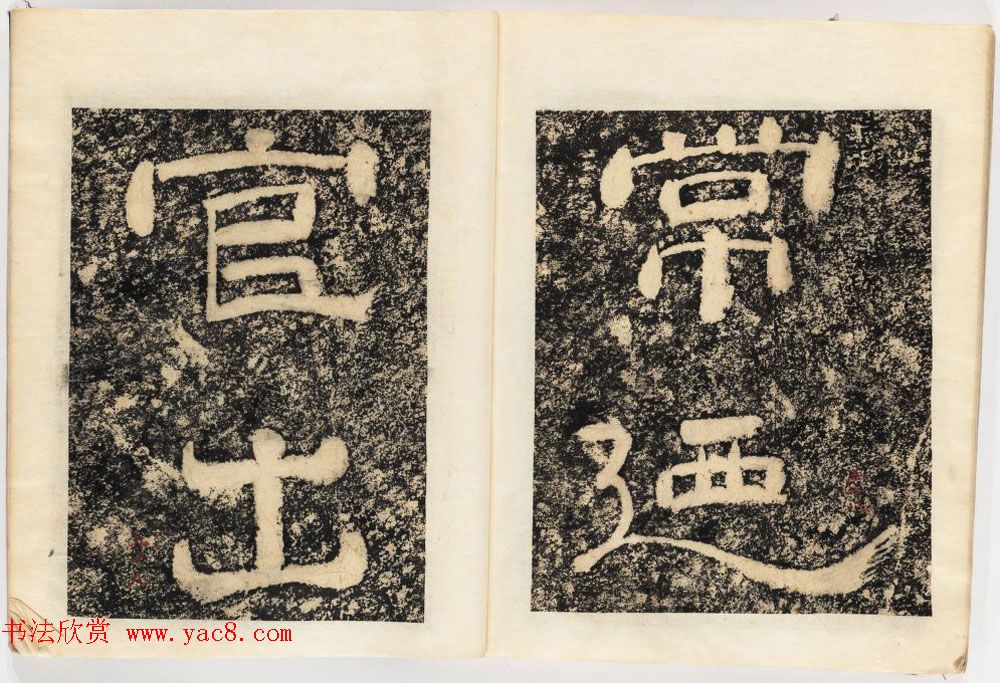 常
廼
官
出
书法欣赏 www.yac8.com